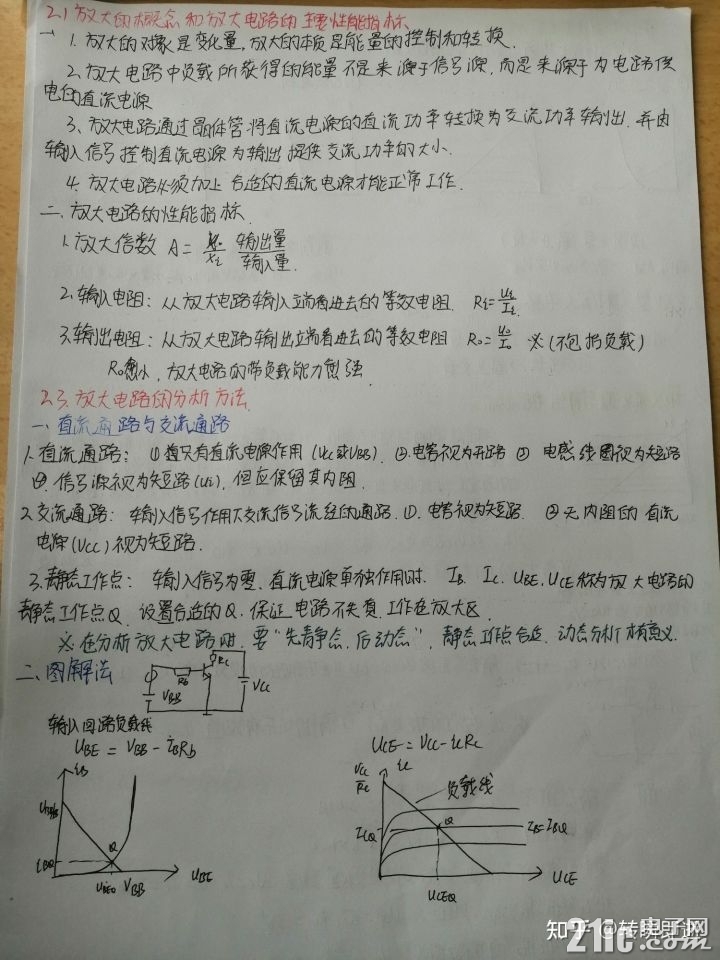 2.1 放大的概念和放大电路的主要性能指标
一 1. 放大的对象是变化量,放大的本质是能量的控制和转换.
2. 放大电路中负载所获得的能量不是来源于信号源,而是来源于为电路供
电的直流电源
3、放大电路通过晶体管将直流电源的直流功率转换为交流功率输出.并由
输入信号控制直流电源为输出提供交流功率的大小.
4. 放大电路必须加上合适的直流电源才能正常工作.
二、放大电路的性能指标.
1.放大倍数 A = Xo/Xi 输出量/输入量.
2.输入电阻: 从放大电路输入端看进去的等效电阻. Ri=Ui/Ii
3.输出电阻: 从放大电路输出端看进去的等效电阻 Ro=Uo/Io ※(不包括负载)
Ro愈小,放大电路的带负载能力愈强
2.3. 放大电路的分析方法
一、直流通路与交流通路
1.直流通路: ①指只有直流电源作用(Vcc或VBB). ②.电容视为开路 ③ 电感线圈视为短路
④.信号源视为短路(Us),但应保留其内阻.
2.交流通路: 输入信号作用下交流信号流经的通路.①.电容视为短路 ②无内阻的直流
电源(Vcc)视为短路.
3.静态工作点: 输入信号为零.直流电源单独作用时. IB. Ic. UBE. UCE称为放大电路的
静态工作点Q. 设置合适的Q,保证电路不失真.工作在放大区.
※在分析放大电路时,要"先静态,后动态", 静态工作点合适.动态分析才有意义.
二、图解法
Rc
Rb
VBB
Vcc
输入回路负载线
UBE = VBB - iBRb
UCE = Vcc - icRc
iB
Q
IBQ
UBEQ VBB
UBE
Vcc/Rc
ic
负载线
ICQ
Q
IB=IBQ
UCEQ
UCE
知乎 @转
21ic电子网
21ic.com